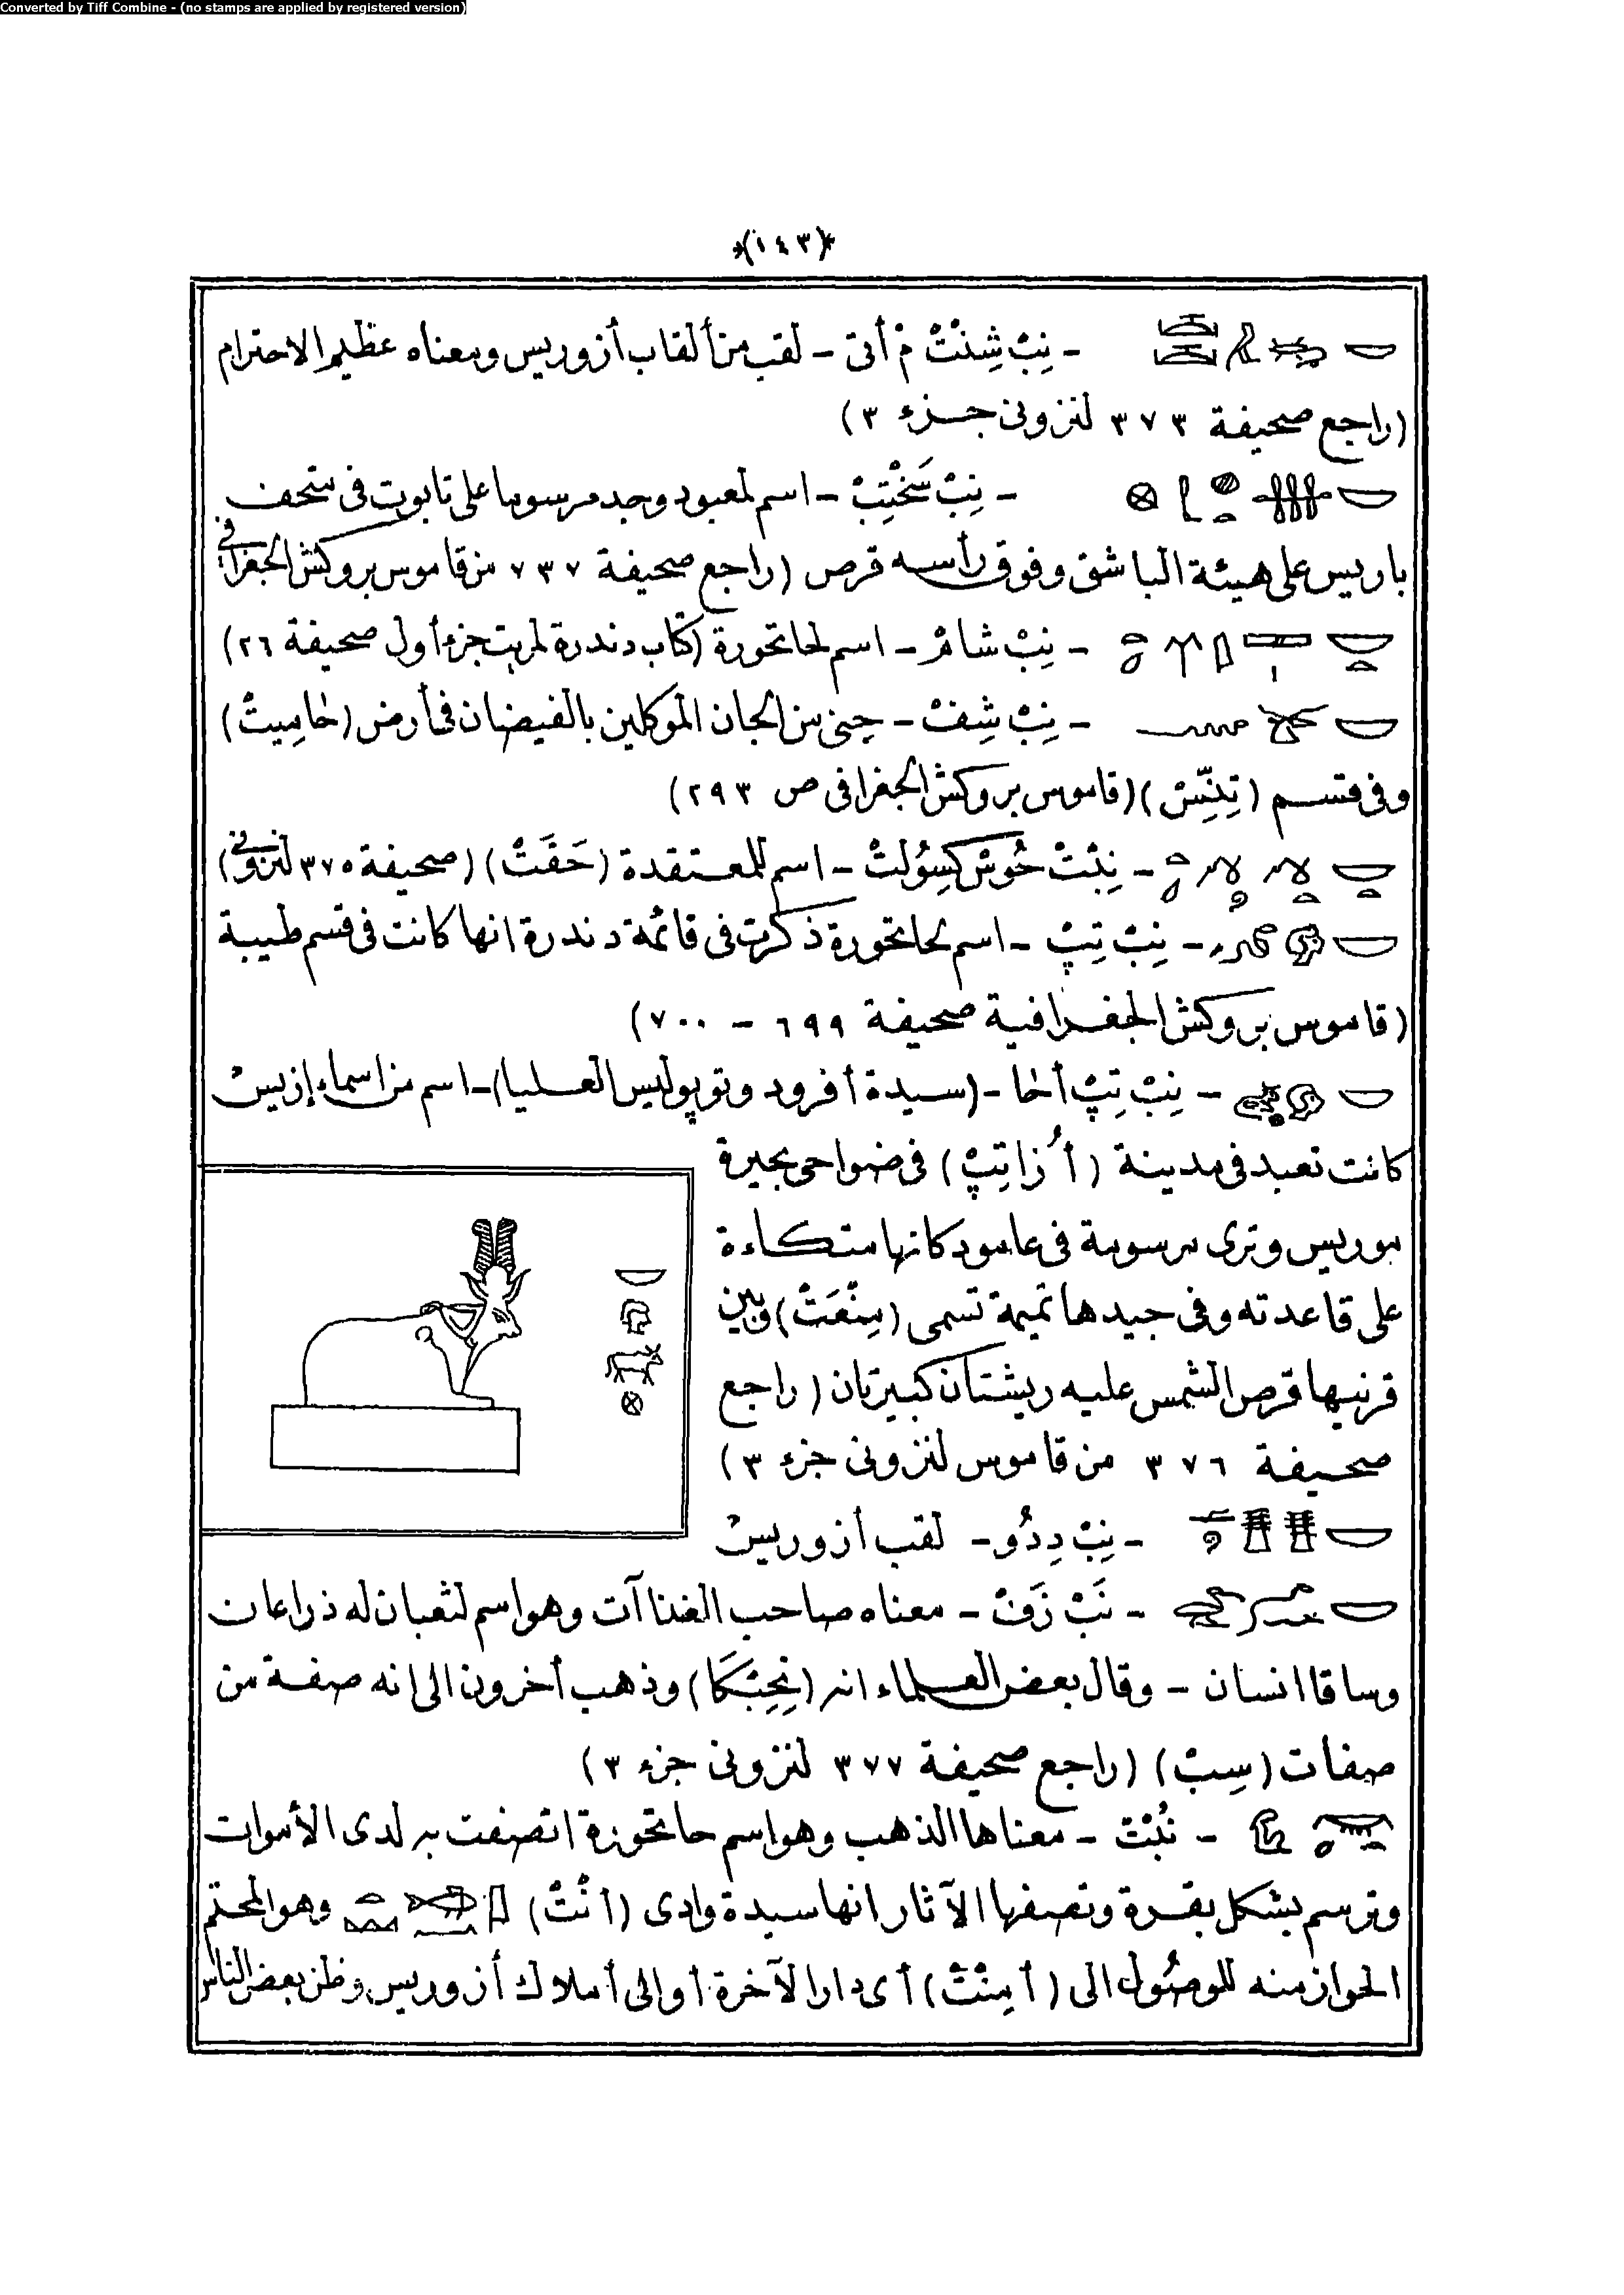 Converted by Tiff Combine - (no stamps are applied by registered version)
﴿١٤٣﴾
- نِبْ شِنْتْ مْ أتى - لقب من ألقاب أزوريس ومعناه عظيم الاحترام
(راجع صحيفة ٣٧٣ لنزونى جزء ٣)
- نِبْ سَخْتِبْ - اسم لمعبود وجد مرسوما على تابوت فى متحف
باريس على هيئة الباشق وفوق رأسه قرص (راجع صحيفة ٧٣٧ من قاموس بروكش الجغرافى)
- نِبْ شامْ - اسم لحاتحورة (كتاب دندرة لمريت جزء أول صحيفة ٢٦)
- نِبْ شِفْ - جنى من الجان الموكلين بالفيضان فى أرض (خاسِيتْ)
وفى قسم (تِنِّسْ) (قاموس بروكش الجغرافى ص ٢٩٣)
- نِبْتْ حُوسْ كَسِوُلتْ - اسم للمعتقدة (حَقَتْ) (صحيفة ٣٧٥ لنزونى)
- نِبْ تِپْ - اسم لحاتحورة ذكرت فى قائمة دندرة انها كانت فى قسم طيبة
(قاموس بروكش الجغرافية صحيفة ٦٩٩ - ٧٠٠)
- نِبْ تِپْ أحا - (سيدة أفرود وتوپوليس العليا) - اسم من اسماء إزيسْ
كانت تعبد فى مدينة (أُزاتِپْ) فى ضواحى بحيرة
موريس وترى مرسومة فى عامود كانها متكاءة
على قاعدته وفى جيدها تميمة تسمى (مِنْعَتْ) وبين
قرنيها قرص الشمس عليه ريشتان كبيرتان (راجع
صحيفة ٣٧٦ من قاموس لنزونى جزء ٣)
- نِبْ دِدُو - لقب أزوريسْ
- نَبْ زَفْ - معناه صاحب الغذاآت وهو اسم لثعبان له ذراعان
وساقا انسان - وقال بعض العلماء انه (نِحِبْكَا) وذهب أخرون الى انه صفة من
صفات (سِبْ) (راجع صحيفة ٣٧٧ لنزونى جزء ٣)
- نُبْتْ - معناها الذهب وهو اسم حاتحورة اتصفت به لدى الأموات
وترسم بشكل بقرة وتصفها الآثار انها سيدة وادى (أنْتْ) وهو المحتم
الجواز منه للوصُول الى (أمِنْتْ) أى دار الآخرة أو الى أملاك أزوريس وظن بعض الناس